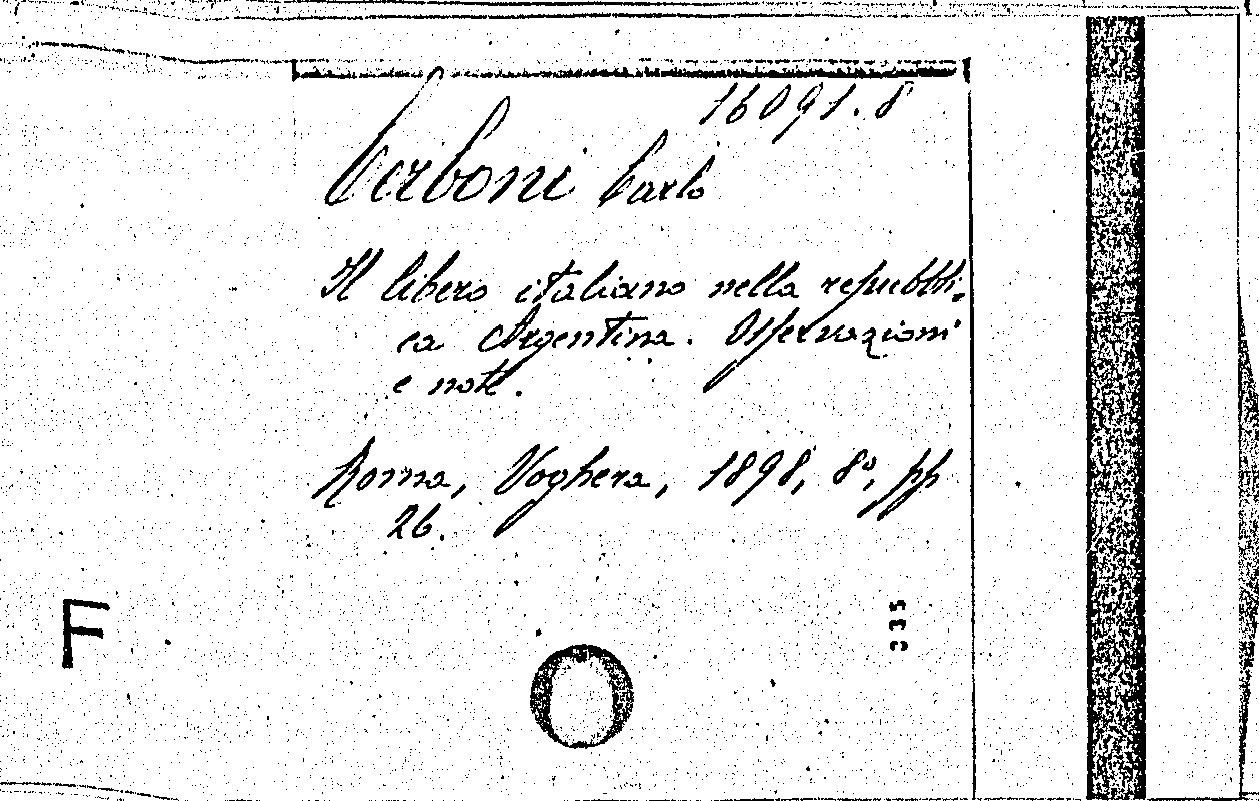 16091.8
Cerboni Carlo
Il libero italiano nella repubbli-
ca Argentina. Osservazioni
e note.
Roma, Voghera, 1898, 8°, pp
26.
F
035